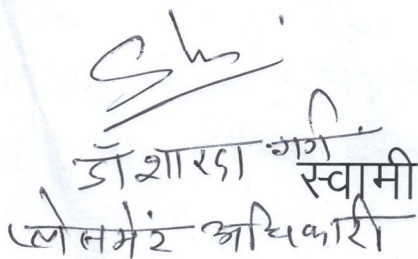 डॉ शारदा गर्ग
स्वामी
प्लेसमेंट अधिकारी